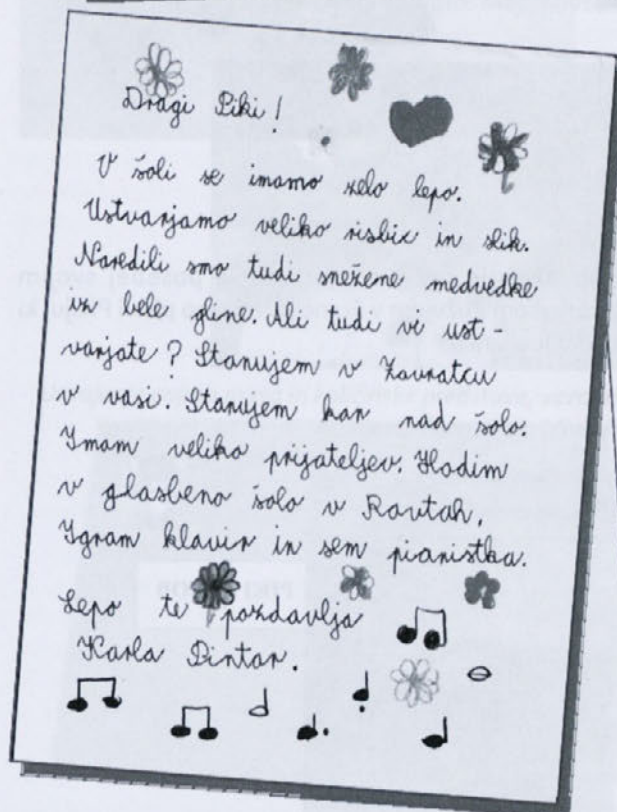 Dragi Piki!
V šoli se imamo zelo lepo.
Ustvarjamo veliko risbic in slik.
Naredili smo tudi snežene medvedke
iz bele gline. Ali tudi vi ust-
varjate? Stanujem v Zavratcu
v vasi. Stanujem kar nad šolo.
Imam veliko prijateljev. Hodim
v glasbeno šolo v Rovtah.
Igram klavir in sem pianistka.
Lepo te pozdavlja
Karla Pintar.